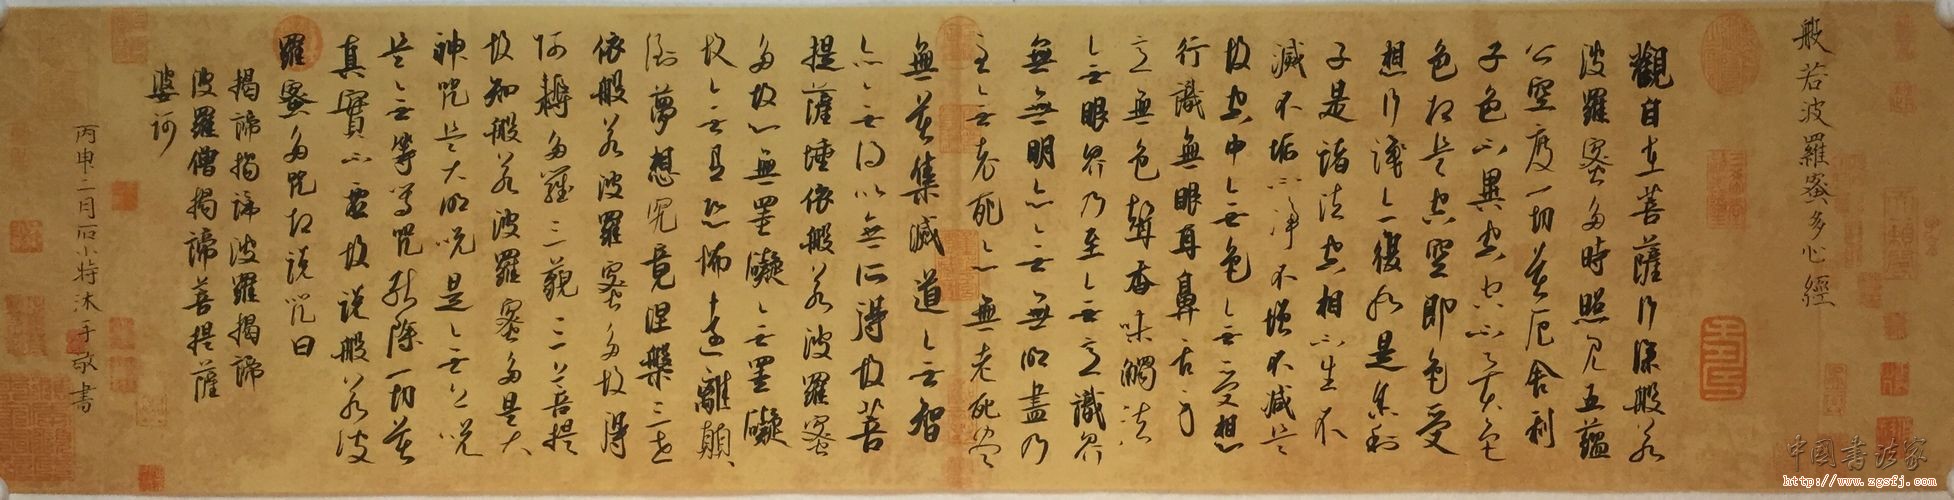 般若波羅蜜多心經
觀自在菩薩行深般若
波羅蜜多時照見五蘊
皆空度一切苦厄舍利
子色不異空空不異色
色即是空空即色受
想行識亦復如是舍利
子是諸法空相不生不
滅不垢不淨不增不減是
故空中亦無色亦無受想
行識無眼耳鼻舌身
意無色聲香味觸法
亦無眼界乃至亦無意識界
無無明亦亦無無明盡乃
至亦無老死亦無老死盡
無苦集滅道亦無智
亦亦無得以無所得故菩
提薩埵依般若波羅蜜
多故心無罣礙亦無罣礙
故亦無有恐怖遠離顛
倒夢想究竟涅槃三世
依般若波羅蜜多故得
阿耨多羅三藐三菩提
故知般若波羅蜜多是大
神咒是大明咒是亦無上咒
是亦無等等咒能除一切苦
真實不虛故說般若波
羅蜜多咒即說咒曰
揭諦揭諦波羅揭諦
波羅僧揭諦菩提薩
婆訶
丙申二月石小特沐手敬書
中国书法家
http://www.zgsfj.com